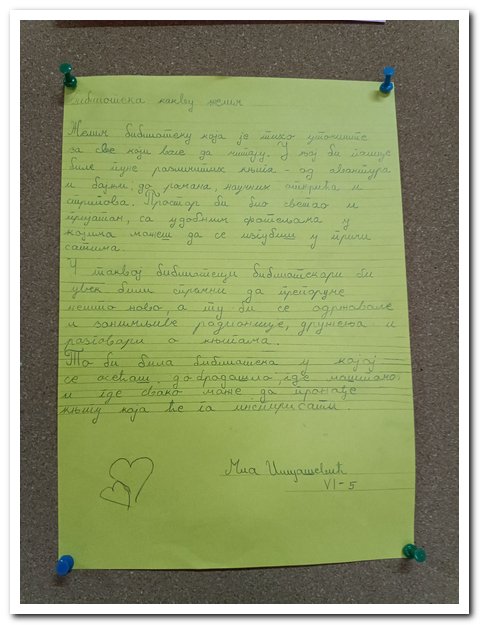 Библиотека какву желим
Желим библиотеку која је тихо уточиште
за све који воле да читају. У њој би полице
биле пуне различитих књига - од авантура
и бајки до романа, научних открића и
стрипова. Простор би био светао и
пријатан, са удобним фотељама у
којима можеш да се изгубиш у причи
сатима.
У таквој библиотеци библиотекари би
увек били спремни да препоруче
нешто ново, а ту би се одржавале
и занимљиве радионице, дружења и
разговори о књигама.
То би била библиотека у којој
се осећаш добродошло, где маштамо
и где свако може да пронађе
књигу која ће га инспирисати.
Миа
VI-5